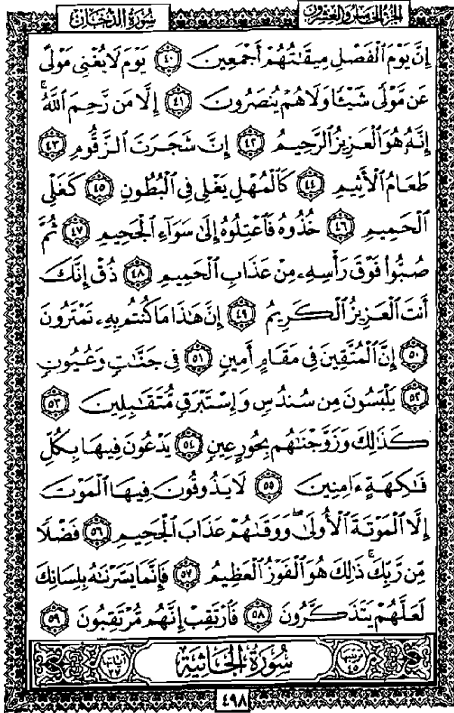 الجزء الخامس والعشرون
سورة الدخان
إِنَّ يَوْمَ ٱلْفَصْلِ مِيقَـٰتُهُمْ أَجْمَعِينَ ٤٠ يَوْمَ لَا يُغْنِى مَوْلًى
عَن مَّوْلًى شَيْـًٔا وَلَا هُمْ يُنصَرُونَ ٤١ إِلَّا مَن رَّحِمَ ٱللَّهُ ۚ
إِنَّهُۥ هُوَ ٱلْعَزِيزُ ٱلرَّحِيمُ ٤٢ إِنَّ شَجَرَتَ ٱلزَّقُّومِ ٤٣
طَعَامُ ٱلْأَثِيمِ ٤٤ كَٱلْمُهْلِ يَغْلِى فِى ٱلْبُطُونِ ٤٥ كَغَلْىِ
ٱلْحَمِيمِ ٤٦ خُذُوهُ فَٱعْتِلُوهُ إِلَىٰ سَوَآءِ ٱلْجَحِيمِ ٤٧ ثُمَّ
صُبُّوا۟ فَوْقَ رَأْسِهِۦ مِنْ عَذَابِ ٱلْحَمِيمِ ٤٨ ذُقْ إِنَّكَ
أَنتَ ٱلْعَزِيزُ ٱلْكَرِيمُ ٤٩ إِنَّ هَـٰذَا مَا كُنتُم بِهِۦ تَمْتَرُونَ
٥٠ إِنَّ ٱلْمُتَّقِينَ فِى مَقَامٍ أَمِينٍ ٥١ فِى جَنَّـٰتٍ وَعُيُونٍ
٥٢ يَلْبَسُونَ مِن سُندُسٍ وَإِسْتَبْرَقٍ مُّتَقَـٰبِلِينَ ٥٣
كَذَٰلِكَ وَزَوَّجْنَـٰهُم بِحُورٍ عِينٍ ٥٤ يَدْعُونَ فِيهَا بِكُلِّ
فَـٰكِهَةٍ ءَامِنِينَ ٥٥ لَا يَذُوقُونَ فِيهَا ٱلْمَوْتَ
إِلَّا ٱلْمَوْتَةَ ٱلْأُولَىٰ ۖ وَوَقَىٰهُمْ عَذَابَ ٱلْجَحِيمِ ٥٦ فَضْلًا
مِّن رَّبِّكَ ۚ ذَٰلِكَ هُوَ ٱلْفَوْزُ ٱلْعَظِيمُ ٥٧ فَإِنَّمَا يَسَّرْنَـٰهُ بِلِسَانِكَ
لَعَلَّهُمْ يَتَذَكَّرُونَ ٥٨ فَٱرْتَقِبْ إِنَّهُم مُّرْتَقِبُونَ ٥٩
ترتيبها ٤٥
سُورَةُ الجَاثِيَةِ
آياتها ٣٧
٤٩٨